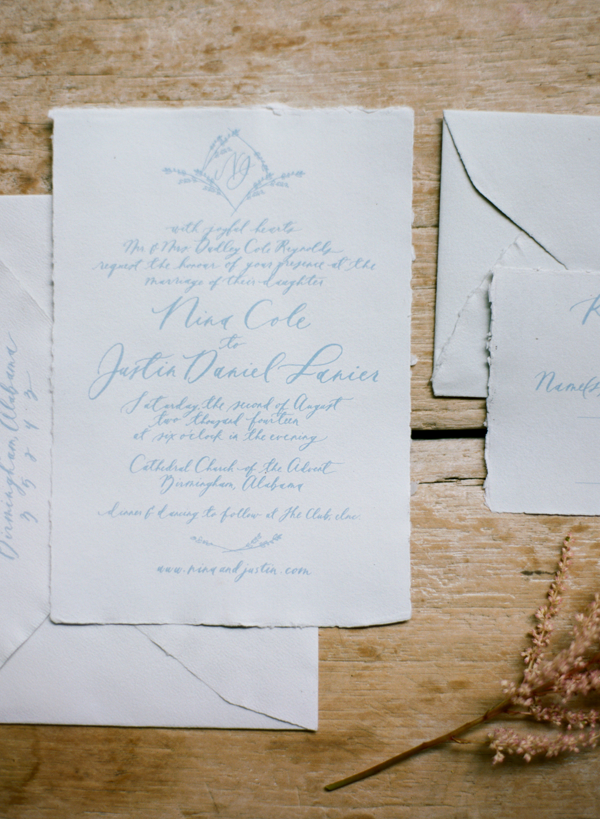 NJ
with joyful hearts
Mr & Mrs Dudley Cole Reynolds
request the honour of your presence at the
marriage of their daughter
Nina Cole
to
Justin Daniel Lanier
Saturday, the second of August
two thousand fourteen
at six o'clock in the evening
Cathedral Church of the Advent
Birmingham, Alabama
dinner & dancing to follow at The Club, inc.
www.ninaandjustin.com
Birmingham, Alabama
35242
R
Name(s